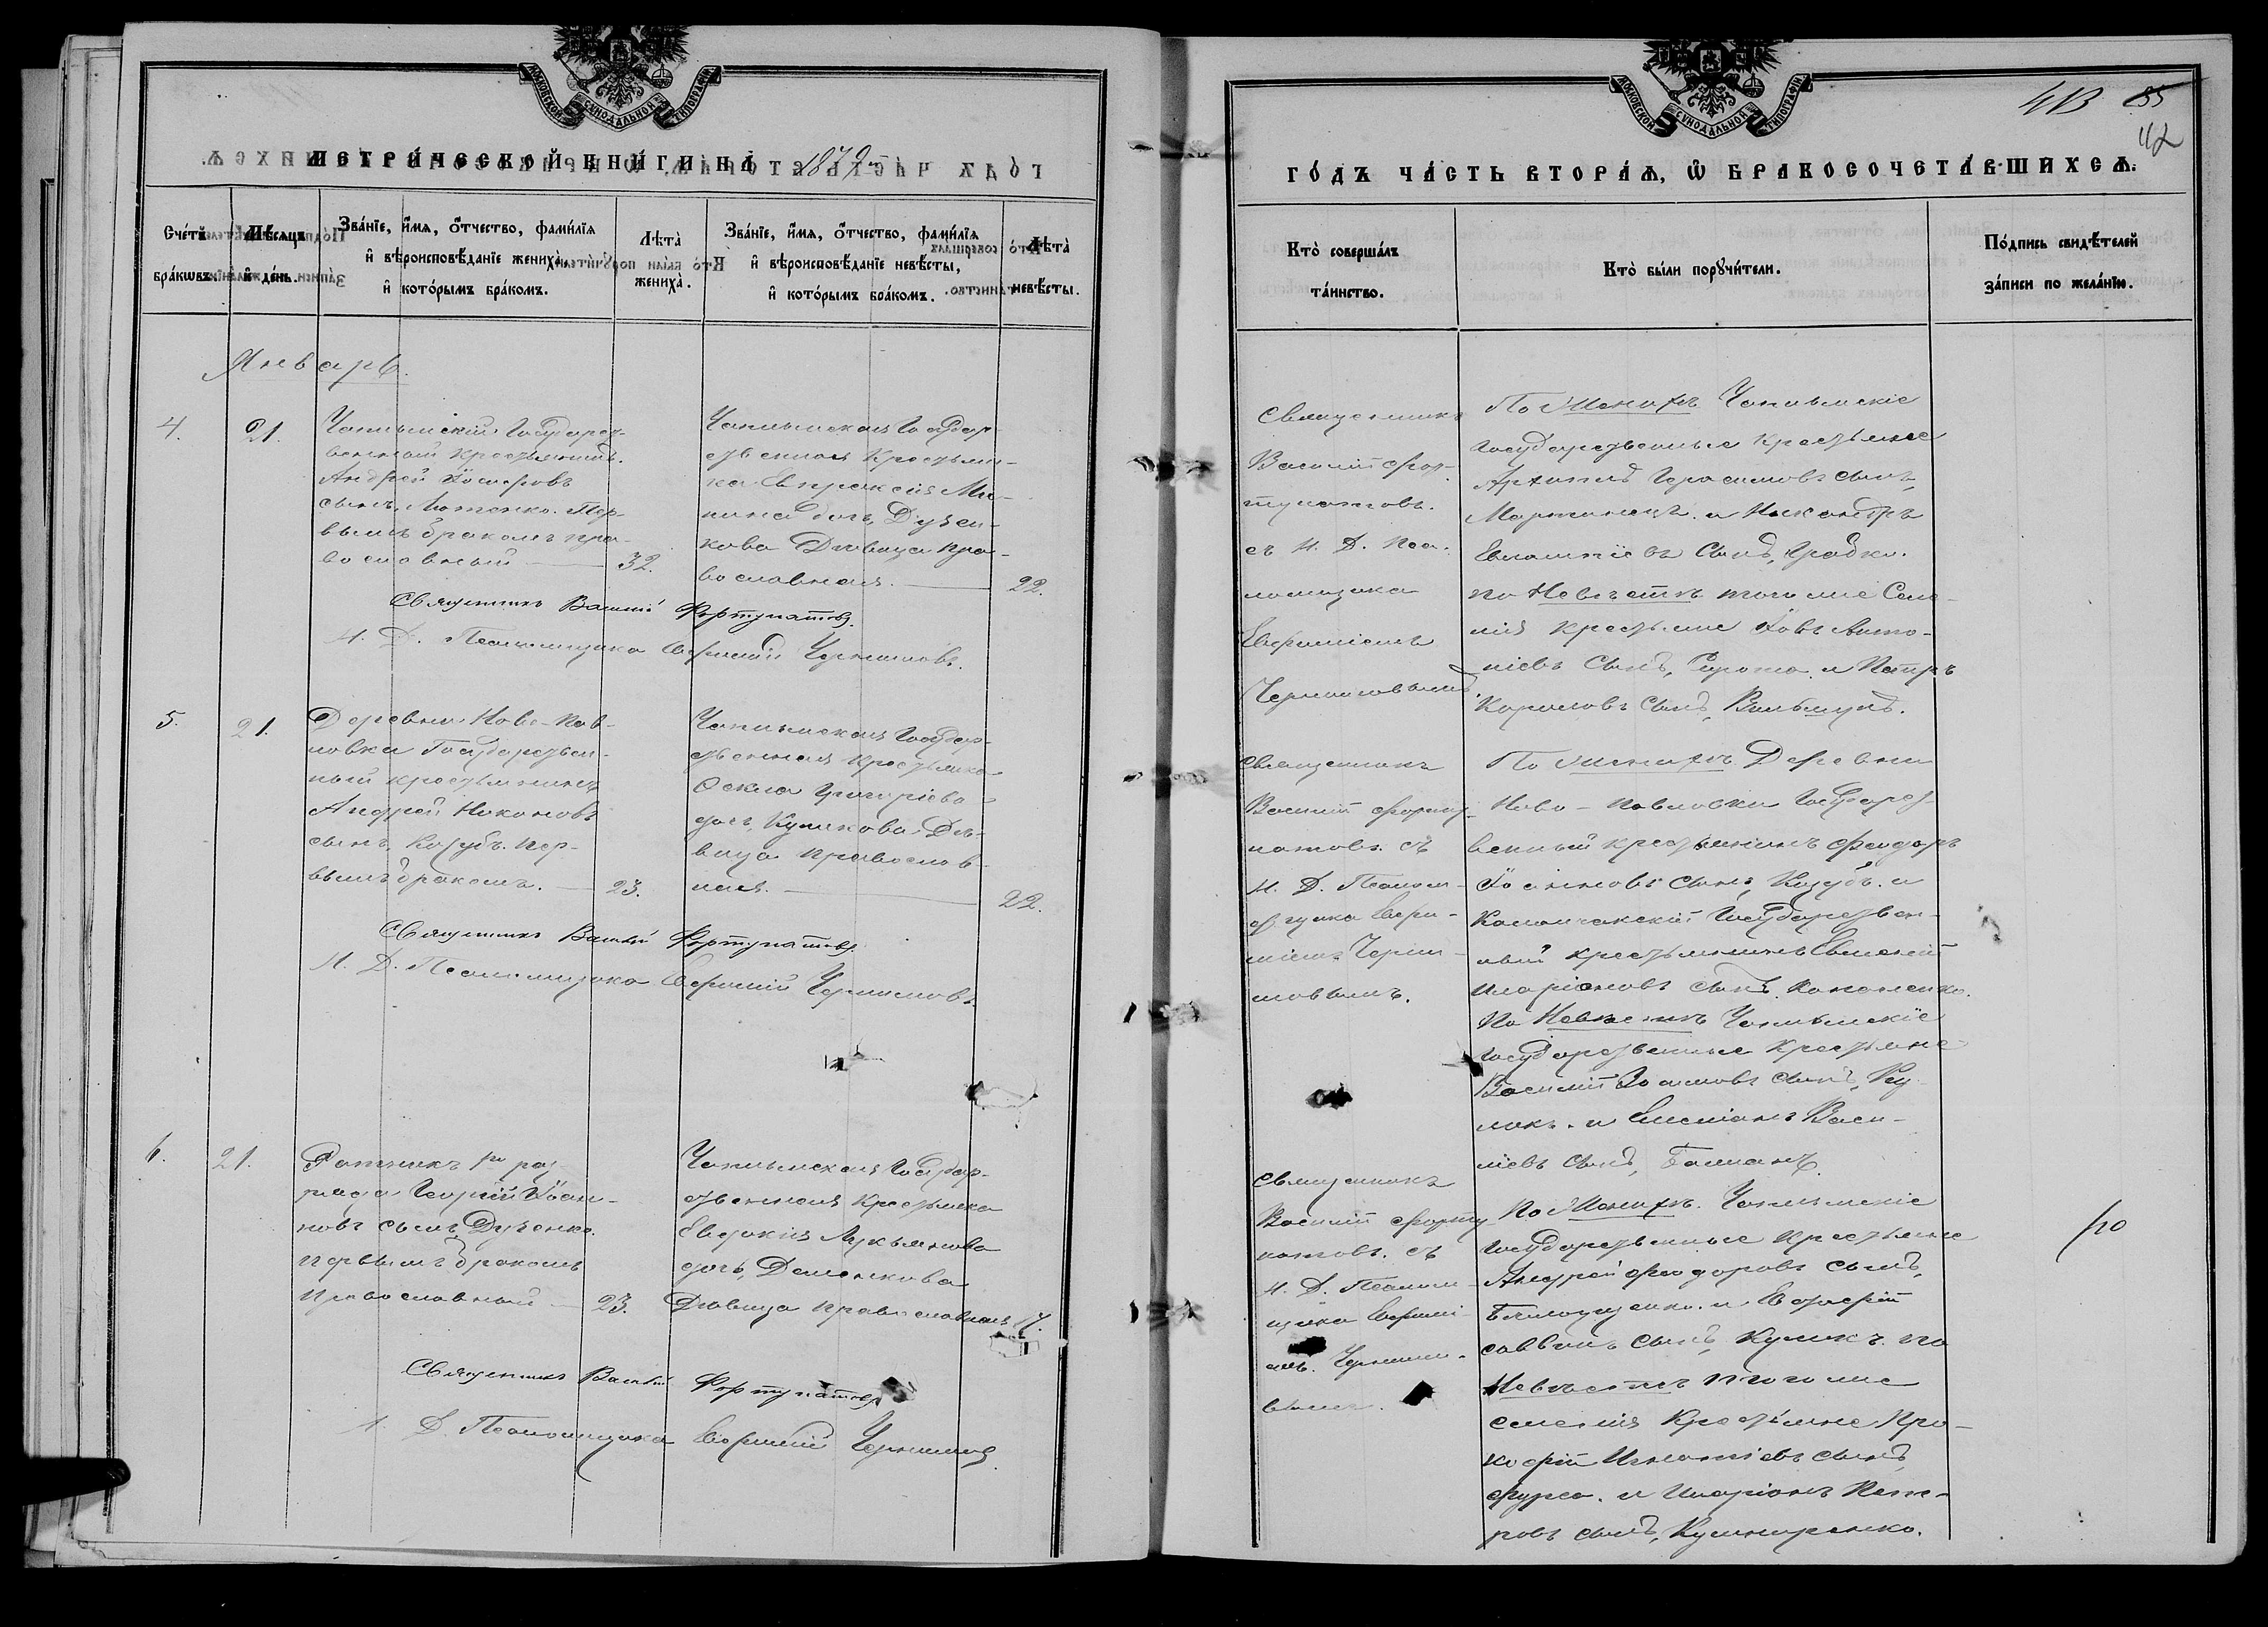 МОСКОВСКОЙ СУНОДАЛЬНОЙ ТИПОГРАФІИ
МЕТРИ́ЧЕСКОЙ КНИ́ГИ НА 1879
Счетъ бра́кѡвъ.
Мѣсяцъ и де́нь.
Зва́нїе, и҆́мя, ѻ҆́тчество, фами́лїя
и҆ вѣроисповѣ́данїе жениха̀
и҆ кото́рымъ бра́комъ.
Лѣта̀
жениха̀.
Зва́нїе, и҆́мя, ѻ҆́тчество, фами́лїя
и҆ вѣроисповѣ́данїе невѣ́сты,
и҆ кото́рымъ бра́комъ.
Лѣта̀
невѣ́сты.
Январь.
4.
21.
Чаплынскій Государст-
венный крестьянинъ
Андрей
сынъ, Пер-
вымъ бракомъ пра-
вославный — 32.
Чаплынская Государ-
ственная Крестьян-
ка Евпраксія Ми-
нина дочь, Дузен-
кова Дѣвица пра-
вославная. — 22.
Священникъ Василій Фортунатовъ.
И. Д. Псаломщика Евфимій Чернышовъ.
5.
21.
Деревни Ново-Пав-
ловки Государствен-
ный крестьянинъ
Андрей Никоновъ
сынъ, Козубъ. Пер-
вымъ бракомъ. — 23.
Чаплынская Государ-
ственная крестьянка
Фекла Григоріева
дочь, Куликова Дѣ-
вица православ-
ная. — 22.
Священникъ Василій Фортунатовъ.
И. Д. Псаломщика Евфимій Чернышовъ.
6.
21.
Ратникъ 1го раз-
ряда Георгій Іоан-
новъ сынъ,
первымъ бракомъ
Православный — 23.
Чаплынская Государ-
ственная Крестьянка
Евдокія Лукьянова
дочь, Деменкова
Дѣвица православная 17.
Священникъ Василій Фортунатовъ
И. Д. Псаломщика Евфимій Чернышовъ.
МОСКОВСКОЙ СУНОДАЛЬНОЙ ТИПОГРАФІИ
55
42
ГО́ДЪ ЧА́СТЬ ВТОРА́Я, Ѡ҆ БРАКОСОЧЕТА́ВШИХСЯ.
Кто̀ совершалъ
та́инство.
Кто̀ бы́ли порꙋчи́тели.
По́дпись свидѣ́телей
за́писи по жела́нїю.
Священникъ
Василій Фор-
тунатовъ.
съ И. Д. Пса-
ломщика
Евфиміемъ
Чернышовымъ.
По Женихѣ Чаплынскіе
Государственные Крестьяне
Архипъ Герасимовъ сынъ,
Мартинецъ. и Никандръ
сынъ, Градко.
по Невѣстѣ того же Селе-
нія крестьяне Іовъ Анто-
ніевъ Сынъ, Сирота. и Петръ
Кириловъ сынъ,
Священникъ
Василій Форту-
натовъ. съ
И. Д. Псалом-
щика Евфи-
міемъ Черны-
шовымъ.
По Женихѣ Деревни
Ново-Павловки Государст-
венный крестьянинъ Феодоръ
Іоанновъ сынъ, Козубъ. и
Каланчакскій Государствен-
ный крестьянинъ Евменій
Иларіоновъ сынъ, Кононенко.
По Невѣстѣ Чаплынскіе
Государственные Крестьяне
Василій сынъ, Ку-
ликъ. и Васи-
ліевъ сынъ,
Священникъ
Василій Форту-
натовъ. съ
И. Д. Псалом-
щика Евфимі-
емъ. Чернышо-
вымъ.
По Женихѣ. Чаплынскіе
Государственные Крестьяне
Андрей Феодоровъ сынъ,
и Евстафій
Саввинъ сынъ, Куликъ. по
Невѣстѣ того же
селенія Крестьяне Про-
кофій Игнатіевъ сынъ,
Фурса. и Иларіонъ Пет-
ровъ сынъ, Кушниренко.